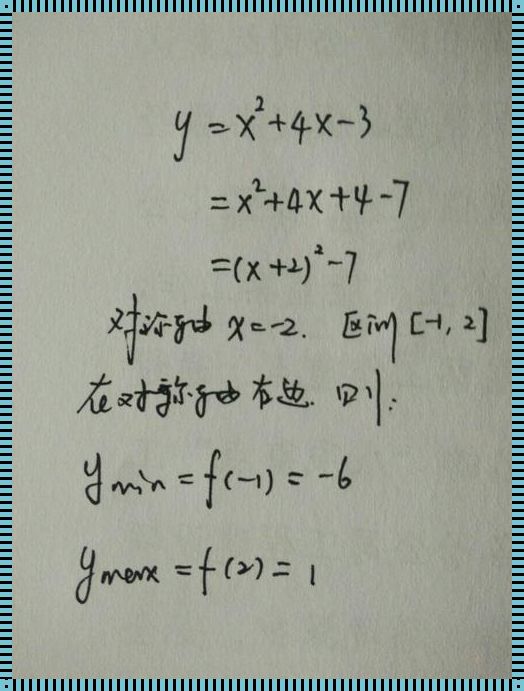 y = x²+4x-3
= x²+4x+4-7
=(x+2)²-7
对称轴 x=-2. 区间[-1,2]
在对称轴右边. 则:
y min = f(-1) = -6
y max = f(2) = 1